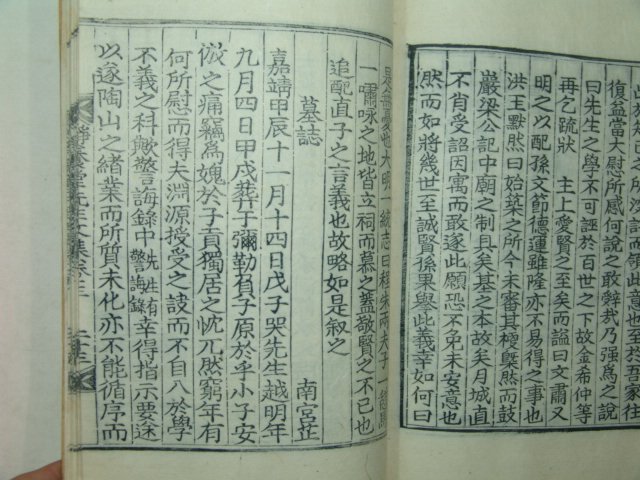 復益當大慰所感何說之敢辭哉乃強爲之說
曰先生之學不可誣於百世之下故金希仲等
再乞疏狀 主上愛賢之至矣而謚曰文肅又
明之以配孫文節德運雖隆亦不易得之事也
洪王默然曰始築之所今未審其極槩然而鼓
嚴梁公記中廟之制具矣基之本故矣月城直
不肯受詔因寓而敢遂此願恐不免未安焉也
然而如將幾世至誠賢孫果與此義幸如何曰
一嘯咏之地皆立祠而慕之蓋敬賢之不已也
追配直子之言義也故略如是叙之
墓誌
南宮
嘉靖甲辰十一月十四日戊子哭先生越明年
九月四日甲戌葬于彌勒有子原於乎小子安
倣之痛竊爲媿於子貢獨居之忱兀然窮年有
何所慰而得夫淵源授受之訣而不自八於學
不義之科歟警誨錄中先姓有警誨錄幸得指示要途
以遂陶山之緒業而所質未化亦不能循序而